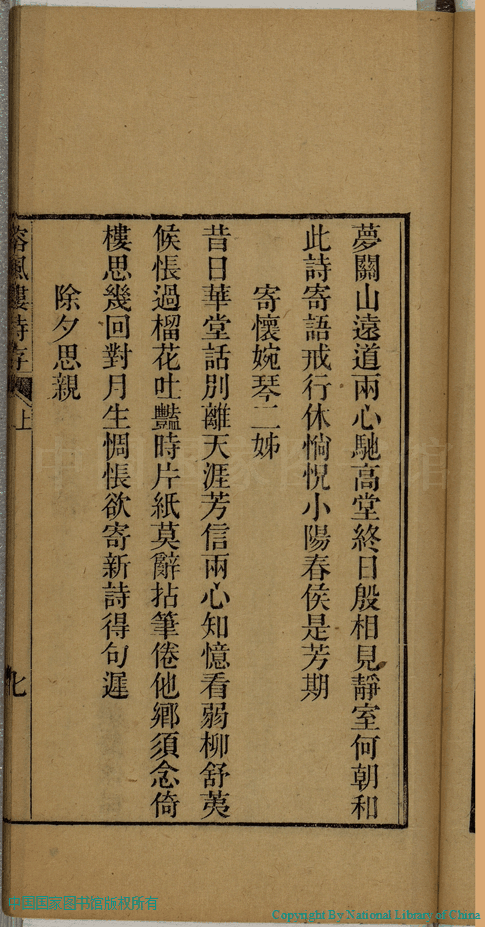 夢關山遠道兩心馳高堂終日殷相見靜室何朝和
此詩寄語戒行休惝怳小陽春侯是芳期
寄懷婉琴二姊
昔日華堂話別離天涯芳信兩心知憶看弱柳舒荑
候悵過榴花吐豔時片紙莫辭拈筆倦他鄉須念倚
樓思幾回對月生惆悵欲寄新詩得句遲
除夕思親
樓詩存
上
七
中国国家图书馆
中国国家图书馆版权所有
Copyright By National Library of China